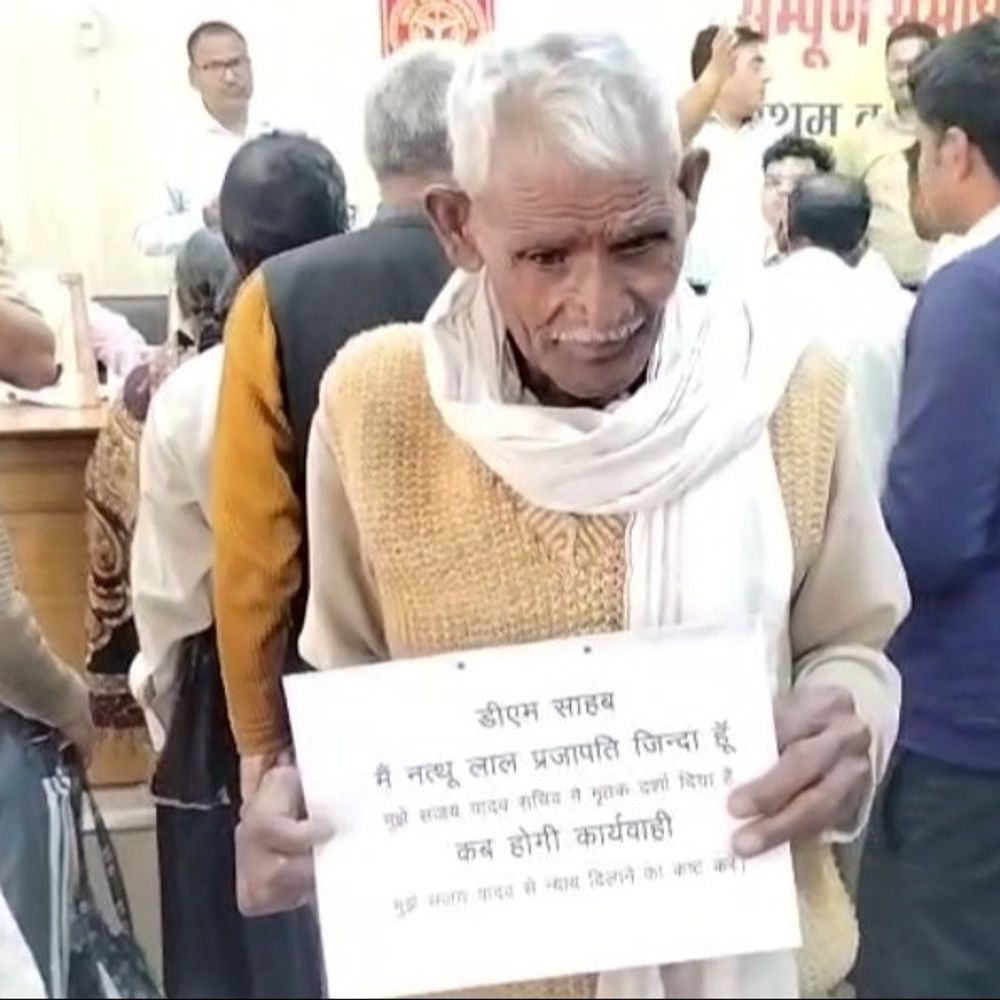 सम्पूर्ण समाध
प्रथम
डीएम साहब
मैं नत्थू लाल प्रजापति जिन्दा हूँ
मुझे संजय यादव सचिव ने मृतक दर्शा दिया है
कब होगी कार्यवाही
मुझे संजय यादव से न्याय दिलाने का कष्ट करें।